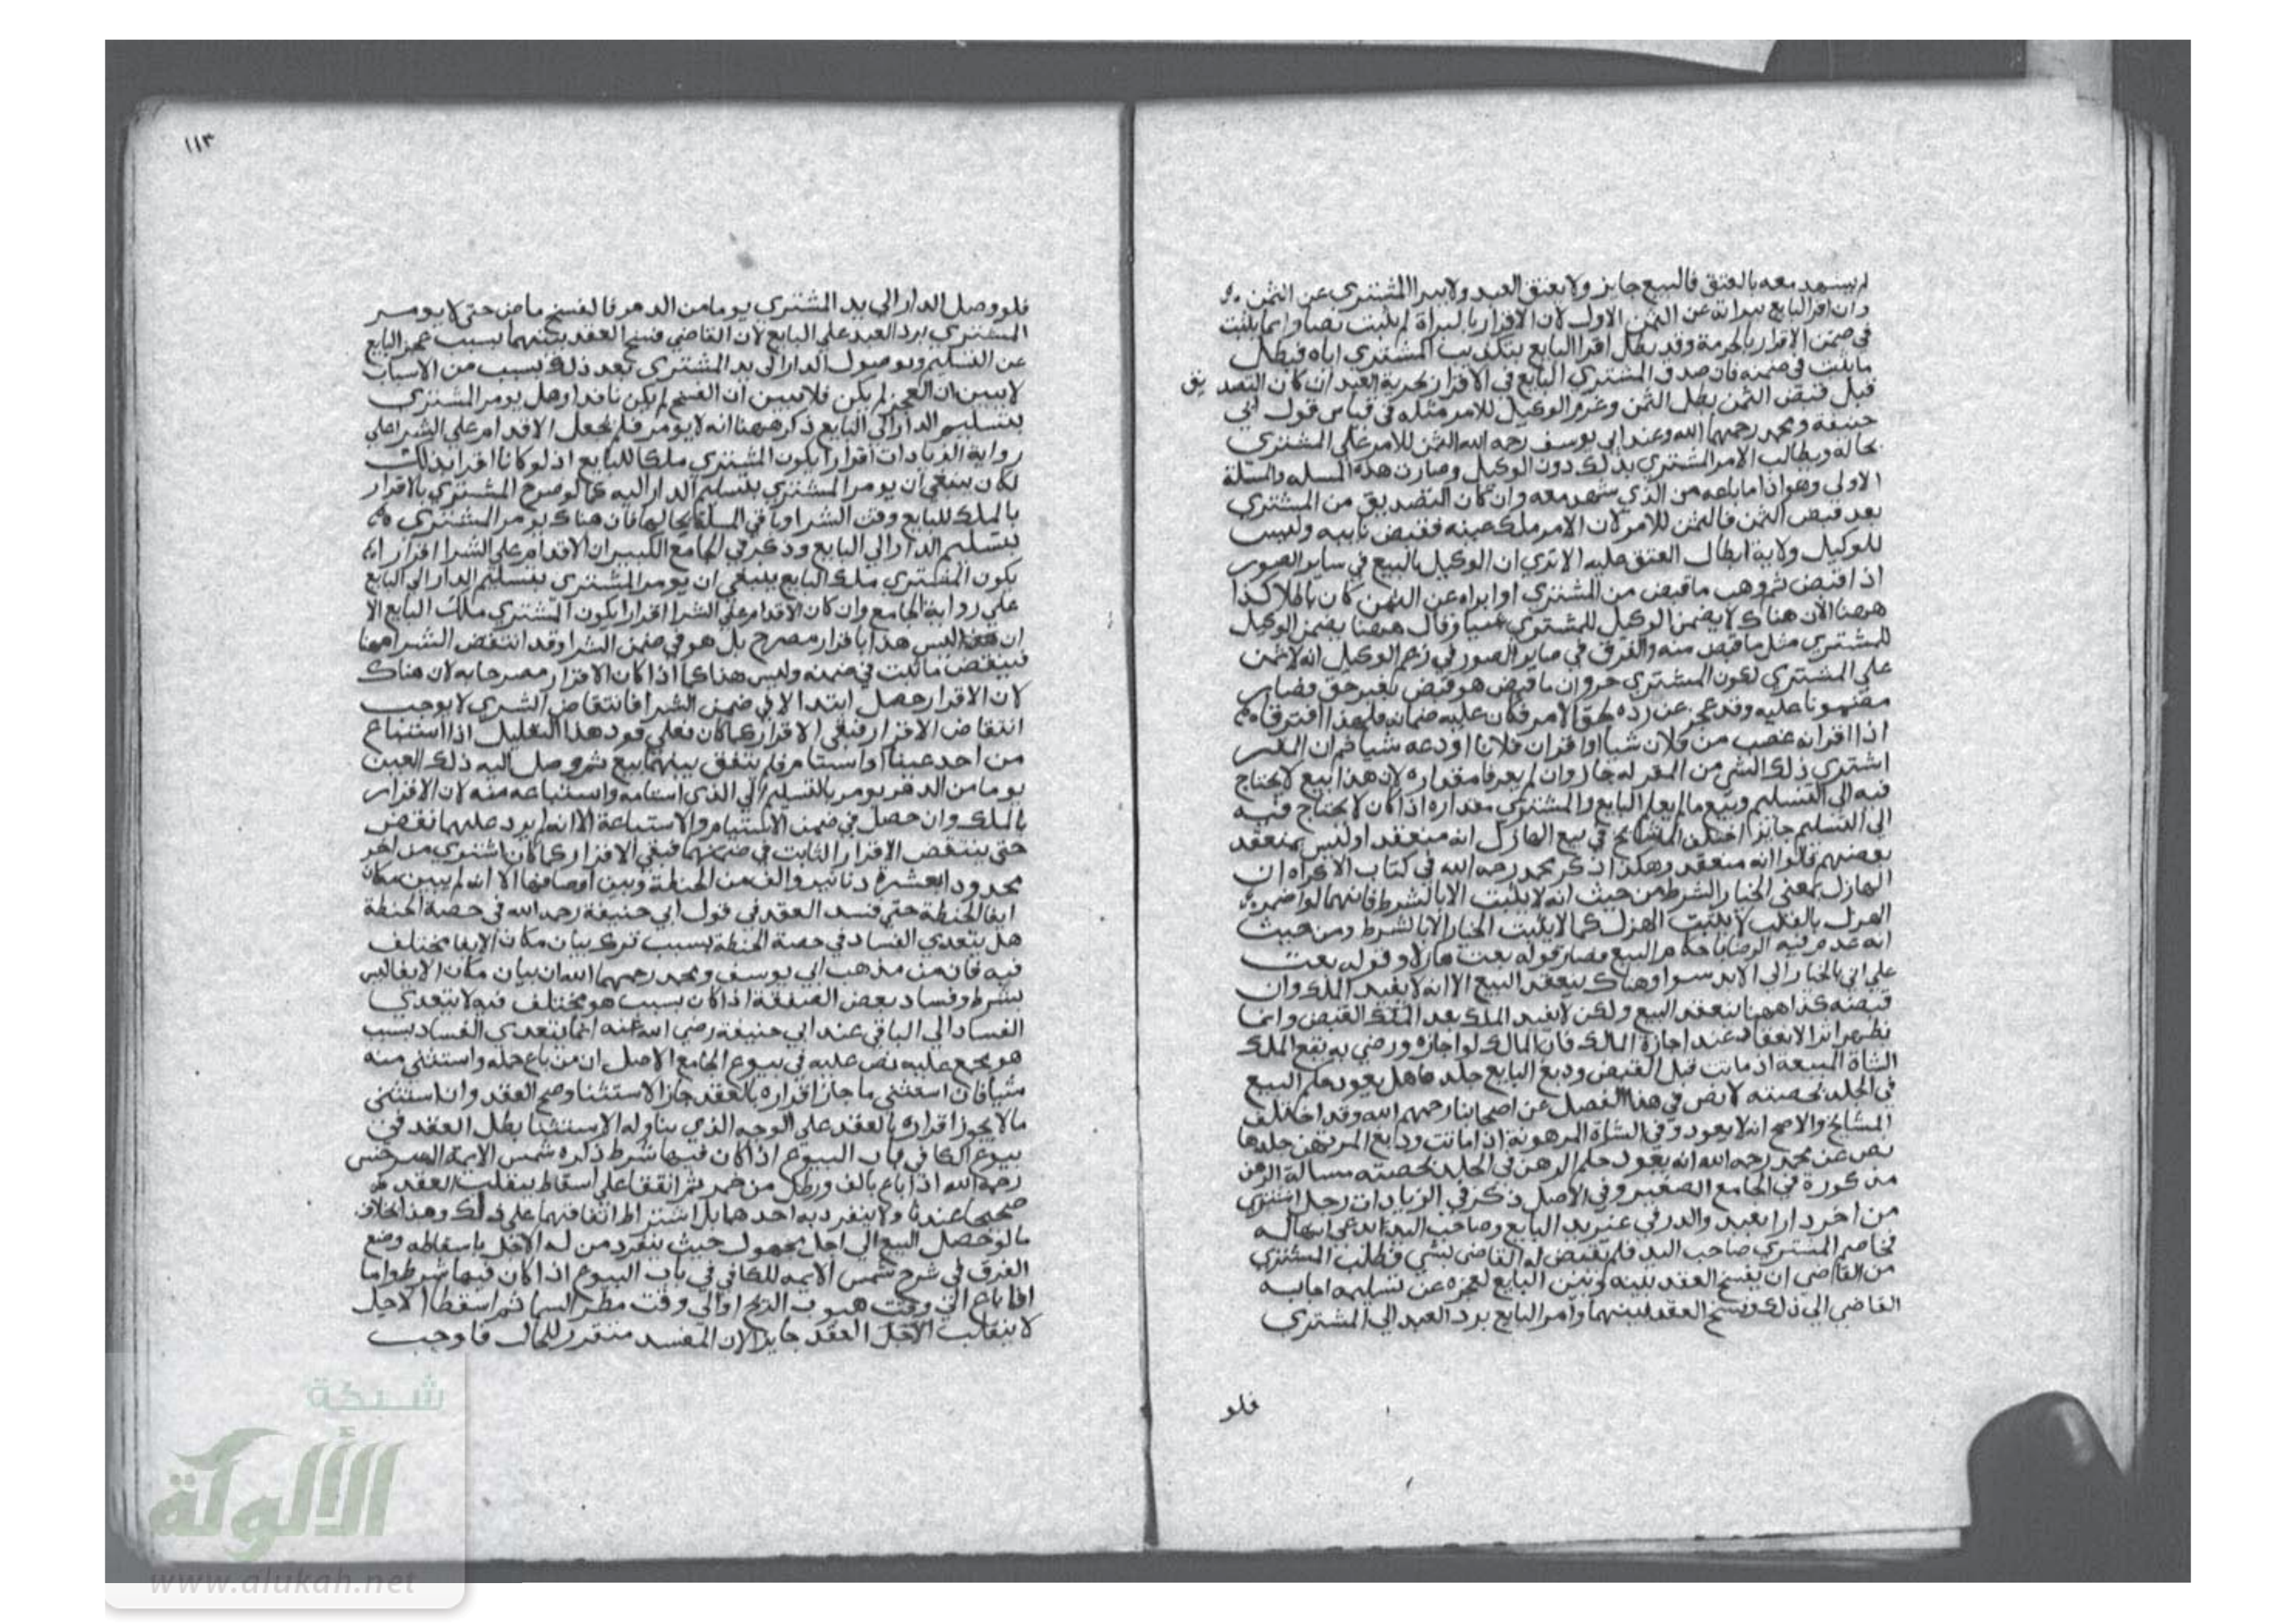 لم يشهد معه بالعتق فالبيع جايز ولا يعتق العبد ولا يبرا المشتري عن الثمن
وان اقر البايع ببراته عن الثمن الاول لان الاقرار بالبراة لم يثبت نصا وانما يثبت
في ضمن الاقرار بالحرمة وقد بطل اقرار البايع بتكذيب المشتري اياه فيبطل
ما يثبت في ضمنه فان صدق المشتري البايع في الاقرار بحرية العبد ان كان التصديق
قبل قبض الثمن بطل الثمن وغرم الوكيل للامر مثله في قياس قول ابي
حنيفة ومحمد رحمهما الله وعند ابي يوسف رحمه الله الثمن للامر على المشتري
بحاله ويطالب الامر المشتري بذلك دون الوكيل وصارت هذه المسله والمسلة
الاولى وهو اذا ما باعه من الذي شهد معه وان كان التصديق من المشتري
بعد قبض الثمن فالثمن للامر لان الامر ملك عينه فقبض نايبه وليس
للوكيل ولاية ابطال العتق عليه الا تري ان الوكيل بالبيع في ساير الصور
اذا قبض ثم وهب ما قبض من المشتري او ابراه عن الثمن كان باطلا كذا
ههنا الا ان هناك لا يضمن الوكيل للمشتري شيا وقال ههنا يضمن الوكيل
للمشتري مثل ما قبض منه والفرق في ساير الصور في زعم الوكيل انه لا ثمن
على المشتري لكون المشتري حر وان ما قبض هو قبض بغير حق فصار
مضمونا عليه وقد عجز عن رده لحق الامر فكان عليه ضمانه فلهذا افترقا
اذا اقر انه غصب من فلان شيا او اقر ان فلانا اودعه شيا ثم ان المقر
اشتري ذلك الشي من المقر له جاز وان لم يعرفا مقداره لان هذا بيع لا يحتاج
فيه الى التسليم وبيع ما لم يعلم البايع والمشتري مقداره اذا كان لا يحتاج فيه
الى التسليم جايز اختلف المشايخ في بيع الهازل انه منعقد او ليس بمنعقد
بعضهم قالوا انه منعقد وهكذا ذكر محمد رحمه الله في كتاب الاكراه ان
الهازل بمعنى الخيار الشرط من حيث انه لا يثبت الا بالشرط فانهما لو اضمرا
الهزل بالقلب لا يثبت الهزل كما لا يثبت الخيار الا بالشرط ومن حيث
انه عدم فيه الرضا باحكام البيع فصار قوله بعت هازلا وقوله بعت
على اني بالخيار الى الابد سوا وهناك ينعقد البيع الا انه لا يفيد الملك وان
قبضه كذا ههنا ينعقد البيع ولكن لا يفيد الملك بعد القبض وانما
يظهر اثر الانعقاد عند اجازة المالك فان المالك لو اجازه ورضي به يقع الملك
الشاة المبيعة اذ ماتت قبل القبض ودبغ البايع جلدها هل يعود حكم البيع
في الجلد بحصته لا نص في هذا الفصل عن اصحابنا رحمهم الله وقد اختلف
المشايخ والاصح انه لا يعود وفي الشاة المرهونة اذا ماتت ودبغ المرتهن جلدها
نص عن محمد رحمه الله انه يعود حكم الرهن في الجلد بحصته مسالة الرهن
مذكورة في الجامع الصغير وفي الاصل ذكر في الزيادات رجل اشتري
من اخر دارا بعبد والدار في غير يد البايع وصاحب اليد يدعي انها له
فخاصم المشتري صاحب اليد فلم يقض له القاضي بشي فطلب المشتري
من القاضي ان يفسخ العقد بينه وبين البايع لعجزه عن تسليمه اجابه
القاضي الى ذلك وفسخ العقد بينهما وامر البايع برد العبد الى المشتري
فلو
١١٣
فلو وصل الدار الى يد المشتري يوما من الدهر فالفسخ ماض حتى لا يومر
المشتري برد العبد على البايع لان القاضي فسخ العقد بينهما بسبب عجز البايع
عن التسليم وبوصول الدار الى يد المشتري بعد ذلك بسبب من الاسباب
لا يبين ان العجز لم يكن فلا يتبين ان الفسخ لم يكن نافدا وهل يومر المشتري
بتسليم الدار الى البايع ذكر ههنا انه لا يومر فلم يجعل الاقدام على الشرا على
رواية الزيادات اقرارا بكون المشتري ملكا للبايع اذ لو كانا اقرا بذلك
لكان ينبغي ان يومر المشتري بتسليم الدار اليه كما لو صرح المشتري بالاقرار
بالملك للبايع وقت الشرا وباقي المسلة بحالها فان هناك يومر المشتري
بتسليم الدار الى البايع وذكر في الجامع الكبير ان الاقدام على الشرا اقرار
بكون المشتري ملك البايع ينبغي ان يومر المشتري بتسليم الدار الى البايع
على رواية الجامع وان كان الاقدام على الشرا اقرارا بكون المشتري ملك البايع الا
ان هذا ليس هذا باقرار مصرح بل هو في ضمن الشرا وقد انتقض الشرا ههنا
فينتقض ما ثبت في ضمنه وليس هذا كما اذا كان الاقرار مصرحا به لان هناك
لان الاقرار حصل ابتدا لا في ضمن الشرا فانتقاض الشري لا يوجب
انتقاض الاقرار فبقي الاقرار كما كان فعلى قود هذا التعليل اذا استباع
من احد عينا او استام فلم يتفق بينهما بيع ثم وصل اليه ذلك العين
يوما من الدهر يومر بالتسليم الى الذي استامه واستباعه منه لان الاقرار
بالملك وان حصل في ضمن الاستيام والاستباعة الا انه لم يرد عليهما نقض
حتى ينتقض الاقرار الثابت في ضمنهما فبقي الاقرار كما كان اشتري من اخر
محدودا بعشرة دنانير والف من الحنطة وبين اوصافها الا انه لم يبين مكان
ايفا الحنطة حتى فسد العقد في قول ابي حنيفة رحمه الله في حصة الحنطة
هل يتعدي الفساد في حصة الحنطة بسبب ترك بيان مكان الايفا مختلف
فيه فان من مذهب ابي يوسف ومحمد رحمهما الله ان بيان مكان الايفا ليس
بشرط وفساد بعض الصفقة اذا كان بسبب هو مختلف فيه لا يتعدي
الفساد الى الباقي عند ابي حنيفة رضي الله عنه انما يتعدي الفساد بسبب
هو مجمع عليه نص عليه في بيوع الجامع الاصل ان من باع جمله واستثنى منه
شيا فان استثنى ما جاز افراده بالعقد جاز الاستثنا وصح العقد وان استثنى
ما لا يجوز افراده بالعقد على الوجه الذي يناوله الاستثنا بطل العقد في
بيوع الكافي باب البيوع اذا كان فيها شرط ذكره شمس الايمة السرخسي
رحمه الله اذا باع بالف ورطل من خمر ثم اتفقا على اسقاط ينقلب العقد
صحيحا عندنا ولا ينفرد به احدهما بل اشترط اتفاقهما على ذلك وهذا خلاف
ما لو حصل البيع الى اجل مجهول حيث ينفرد من له الاجل باسقاطه وضع
الفرق في شرح شمس الايمه للكافي في باب البيوع اذا كان فيها شرط واما
اذا باع الى وقت هبوب الريح او الى وقت مطر السما ثم اسقطا الاجل
لا ينقلب الاجل العقد جايزا لان المفسد متقرر للحال فاوجب
شبكة
الألوكة
www.alukah.net